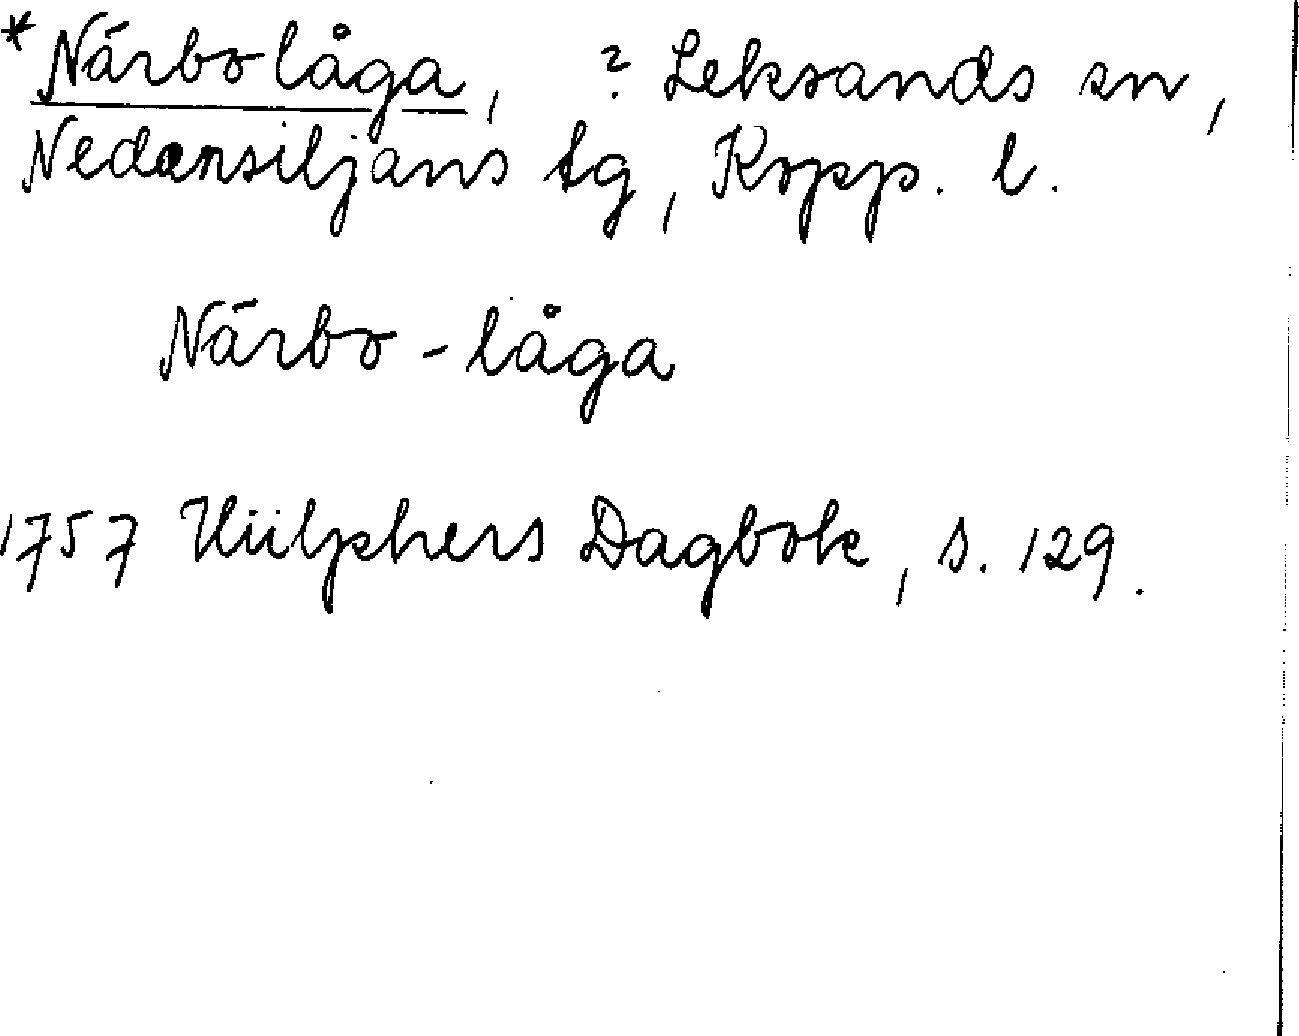 *Närbolåga, ? Leksands sn,
Nedansiljans tg, Kopp. l.
Närbo-låga
1757 Hülphers Dagbok, s. 129.